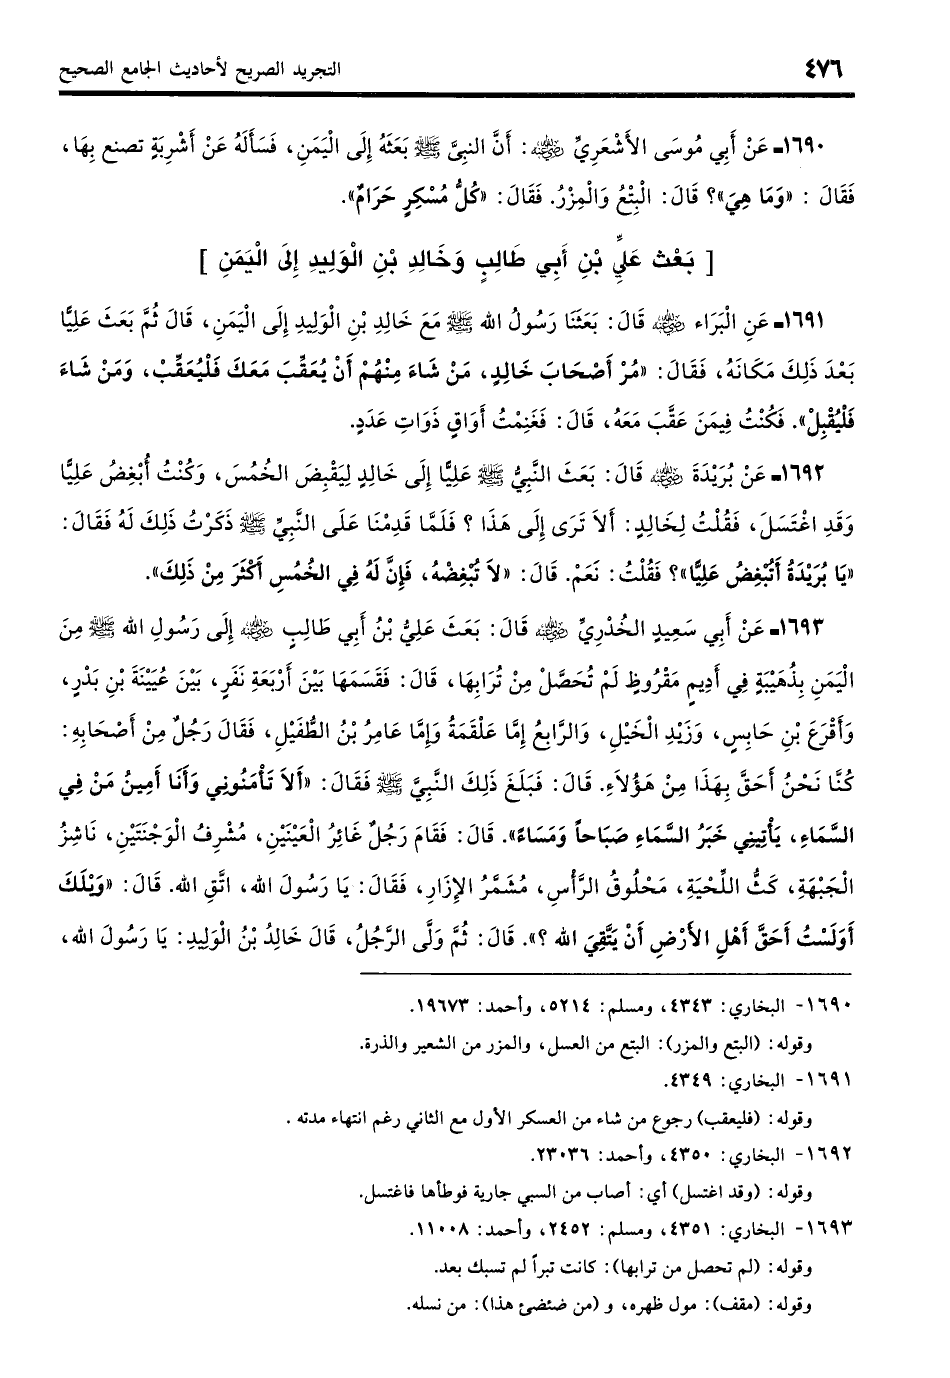 ٤٧٦ التجريد الصريح لأحاديث الجامع الصحيح
١٦٩٠ـ عَنْ أَبِي مُوسَى الأَشْعَرِيِّ رضي الله عنه: أَنَّ النبيَّ ﷺ بَعَثَهُ إِلَى الْيَمَنِ، فَسَأَلَهُ عَنْ أَشْرِبَةٍ تصنع بِهَا،
فَقَالَ : «وَمَا هِيَ»؟ قَالَ: الْبِتْعُ وَالْمِزْرُ. فَقَالَ: «كُلُّ مُسْكِرٍ حَرَامٌ».
[ بَعْث عَلِيِّ بْنِ أَبِي طَالِبٍ وَخَالِدِ بْنِ الْوَلِيدِ إِلَى الْيَمَنِ ]
١٦٩١ـ عَنِ الْبَرَاء رضي الله عنه قَالَ: بَعَثَنَا رَسُولُ الله ﷺ مَعَ خَالِدِ بْنِ الْوَلِيدِ إِلَى الْيَمَنِ، قَالَ ثُمَّ بَعَثَ عَلِيًّا
بَعْدَ ذَلِكَ مَكَانَهُ، فَقَالَ: «مُرْ أَصْحَابَ خَالِدٍ، مَنْ شَاءَ مِنْهُمْ أَنْ يُعَقِّبَ مَعَكَ فَلْيُعَقِّبْ، وَمَنْ شَاءَ
فَلْيُقْبِلْ». فَكُنْتُ فِيمَنَ عَقَّبَ مَعَهُ، قَالَ: فَغَنِمْتُ أَوَاقٍ ذَوَاتِ عَدَدٍ.
١٦٩٢ـ عَنْ بُرَيْدَةَ رضي الله عنه قَالَ: بَعَثَ النَّبِيُّ ﷺ عَلِيًّا إِلَى خَالِدٍ لِيَقْبِضَ الخُمُسَ، وَكُنْتُ أُبْغِضُ عَلِيًّا
وَقَدِ اغْتَسَلَ، فَقُلْتُ لِخَالِدٍ: أَلاَ تَرَى إِلَى هَذَا ؟ فَلَمَّا قَدِمْنَا عَلَى النَّبِيِّ ﷺ ذَكَرْتُ ذَلِكَ لَهُ فَقَالَ:
«يَا بُرَيْدَةُ أَتُبْغِضُ عَلِيًّا»؟ فَقُلْتُ: نَعَمْ. قَالَ: «لاَ تُبْغِضْهُ، فَإِنَّ لَهُ فِي الخُمُسِ أَكْثَرَ مِنْ ذَلِكَ».
١٦٩٣ـ عَنْ أَبِي سَعِيدٍ الخُدْرِيِّ رضي الله عنه قَالَ: بَعَثَ عَلِيُّ بْنُ أَبِي طَالِبٍ رضي الله عنه إِلَى رَسُولِ الله ﷺ مِنَ
الْيَمَنِ بِذُهَيْبَةٍ فِي أَدِيمٍ مَقْرُوظٍ لَمْ تُحَصَّلْ مِنْ تُرَابِهَا، قَالَ: فَقَسَمَهَا بَيْنَ أَرْبَعَةِ نَفَرٍ، بَيْنَ عُيَيْنَةَ بْنِ بَدْرٍ،
وَأَقْرَعَ بْنِ حَابِسٍ، وَزَيْدِ الْخَيْلِ، وَالرَّابِعُ إِمَّا عَلْقَمَةُ وَإِمَّا عَامِرُ بْنُ الطُّفَيْلِ، فَقَالَ رَجُلٌ مِنْ أَصْحَابِهِ:
كُنَّا نَحْنُ أَحَقَّ بِهَذَا مِنْ هَؤُلاَءِ. قَالَ: فَبَلَغَ ذَلِكَ النَّبِيَّ ﷺ فَقَالَ: «أَلاَ تَأْمَنُونِي وَأَنَا أَمِينُ مَنْ فِي
السَّمَاءِ، يَأْتِينِي خَبَرُ السَّمَاءِ صَبَاحاً وَمَسَاءً». قَالَ: فَقَامَ رَجُلٌ غَائِرُ الْعَيْنَيْنِ، مُشْرِفُ الْوَجْنَتَيْنِ، نَاشِزُ
الْجَبْهَةِ، كَثُّ اللِّحْيَةِ، مَحْلُوقُ الرَّأْسِ، مُشَمَّرُ الإِزَارِ، فَقَالَ: يَا رَسُولَ الله، اتَّقِ الله. قَالَ: «وَيْلَكَ
أَوَلَسْتُ أَحَقَّ أَهْلِ الأَرْضِ أَنْ يَتَّقِيَ الله ؟». قَالَ: ثُمَّ وَلَّى الرَّجُلُ، قَالَ خَالِدُ بْنُ الْوَلِيدِ: يَا رَسُولَ الله،
١٦٩٠- البخاري: ٤٣٤٣، ومسلم: ٥٢١٤، وأحمد: ١٩٦٧٣.
وقوله: (البتع والمزر): البتع من العسل، والمزر من الشعير والذرة.
١٦٩١- البخاري: ٤٣٤٩.
وقوله: (فليعقب) رجوع من شاء من العسكر الأول مع الثاني رغم انتهاء مدته .
١٦٩٢- البخاري: ٤٣٥٠، وأحمد: ٢٣٠٣٦.
وقوله: (وقد اغتسل) أي: أصاب من السبي جارية فوطأها فاغتسل.
١٦٩٣- البخاري: ٤٣٥١، ومسلم: ٢٤٥٢، وأحمد: ١١٠٠٨.
وقوله: (لم تحصل من ترابها): كانت تبراً لم تسبك بعد.
وقوله: (مقف): مول ظهره، و (من ضئضئ هذا): من نسله.